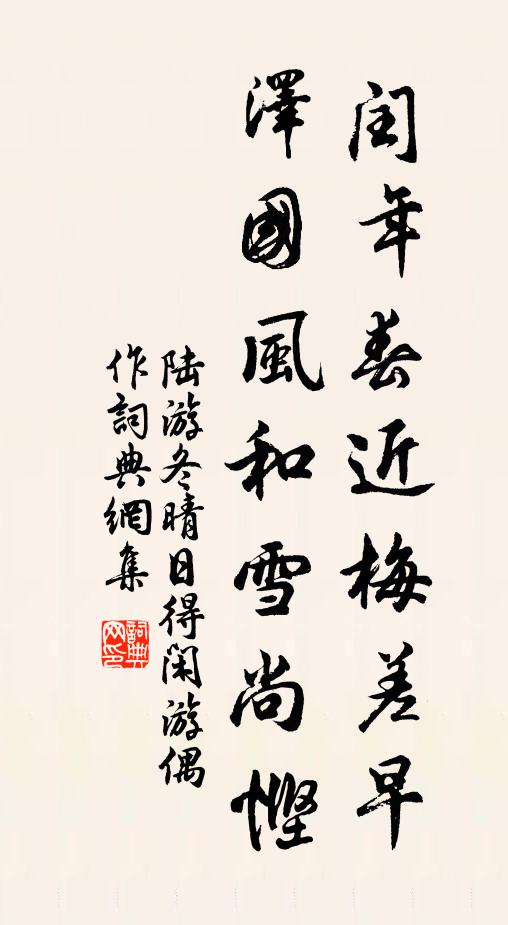 閏年春近梅差早
澤國風和雪尚慳
陆游冬晴日得闲游偶
作詞典網集
詞典网印